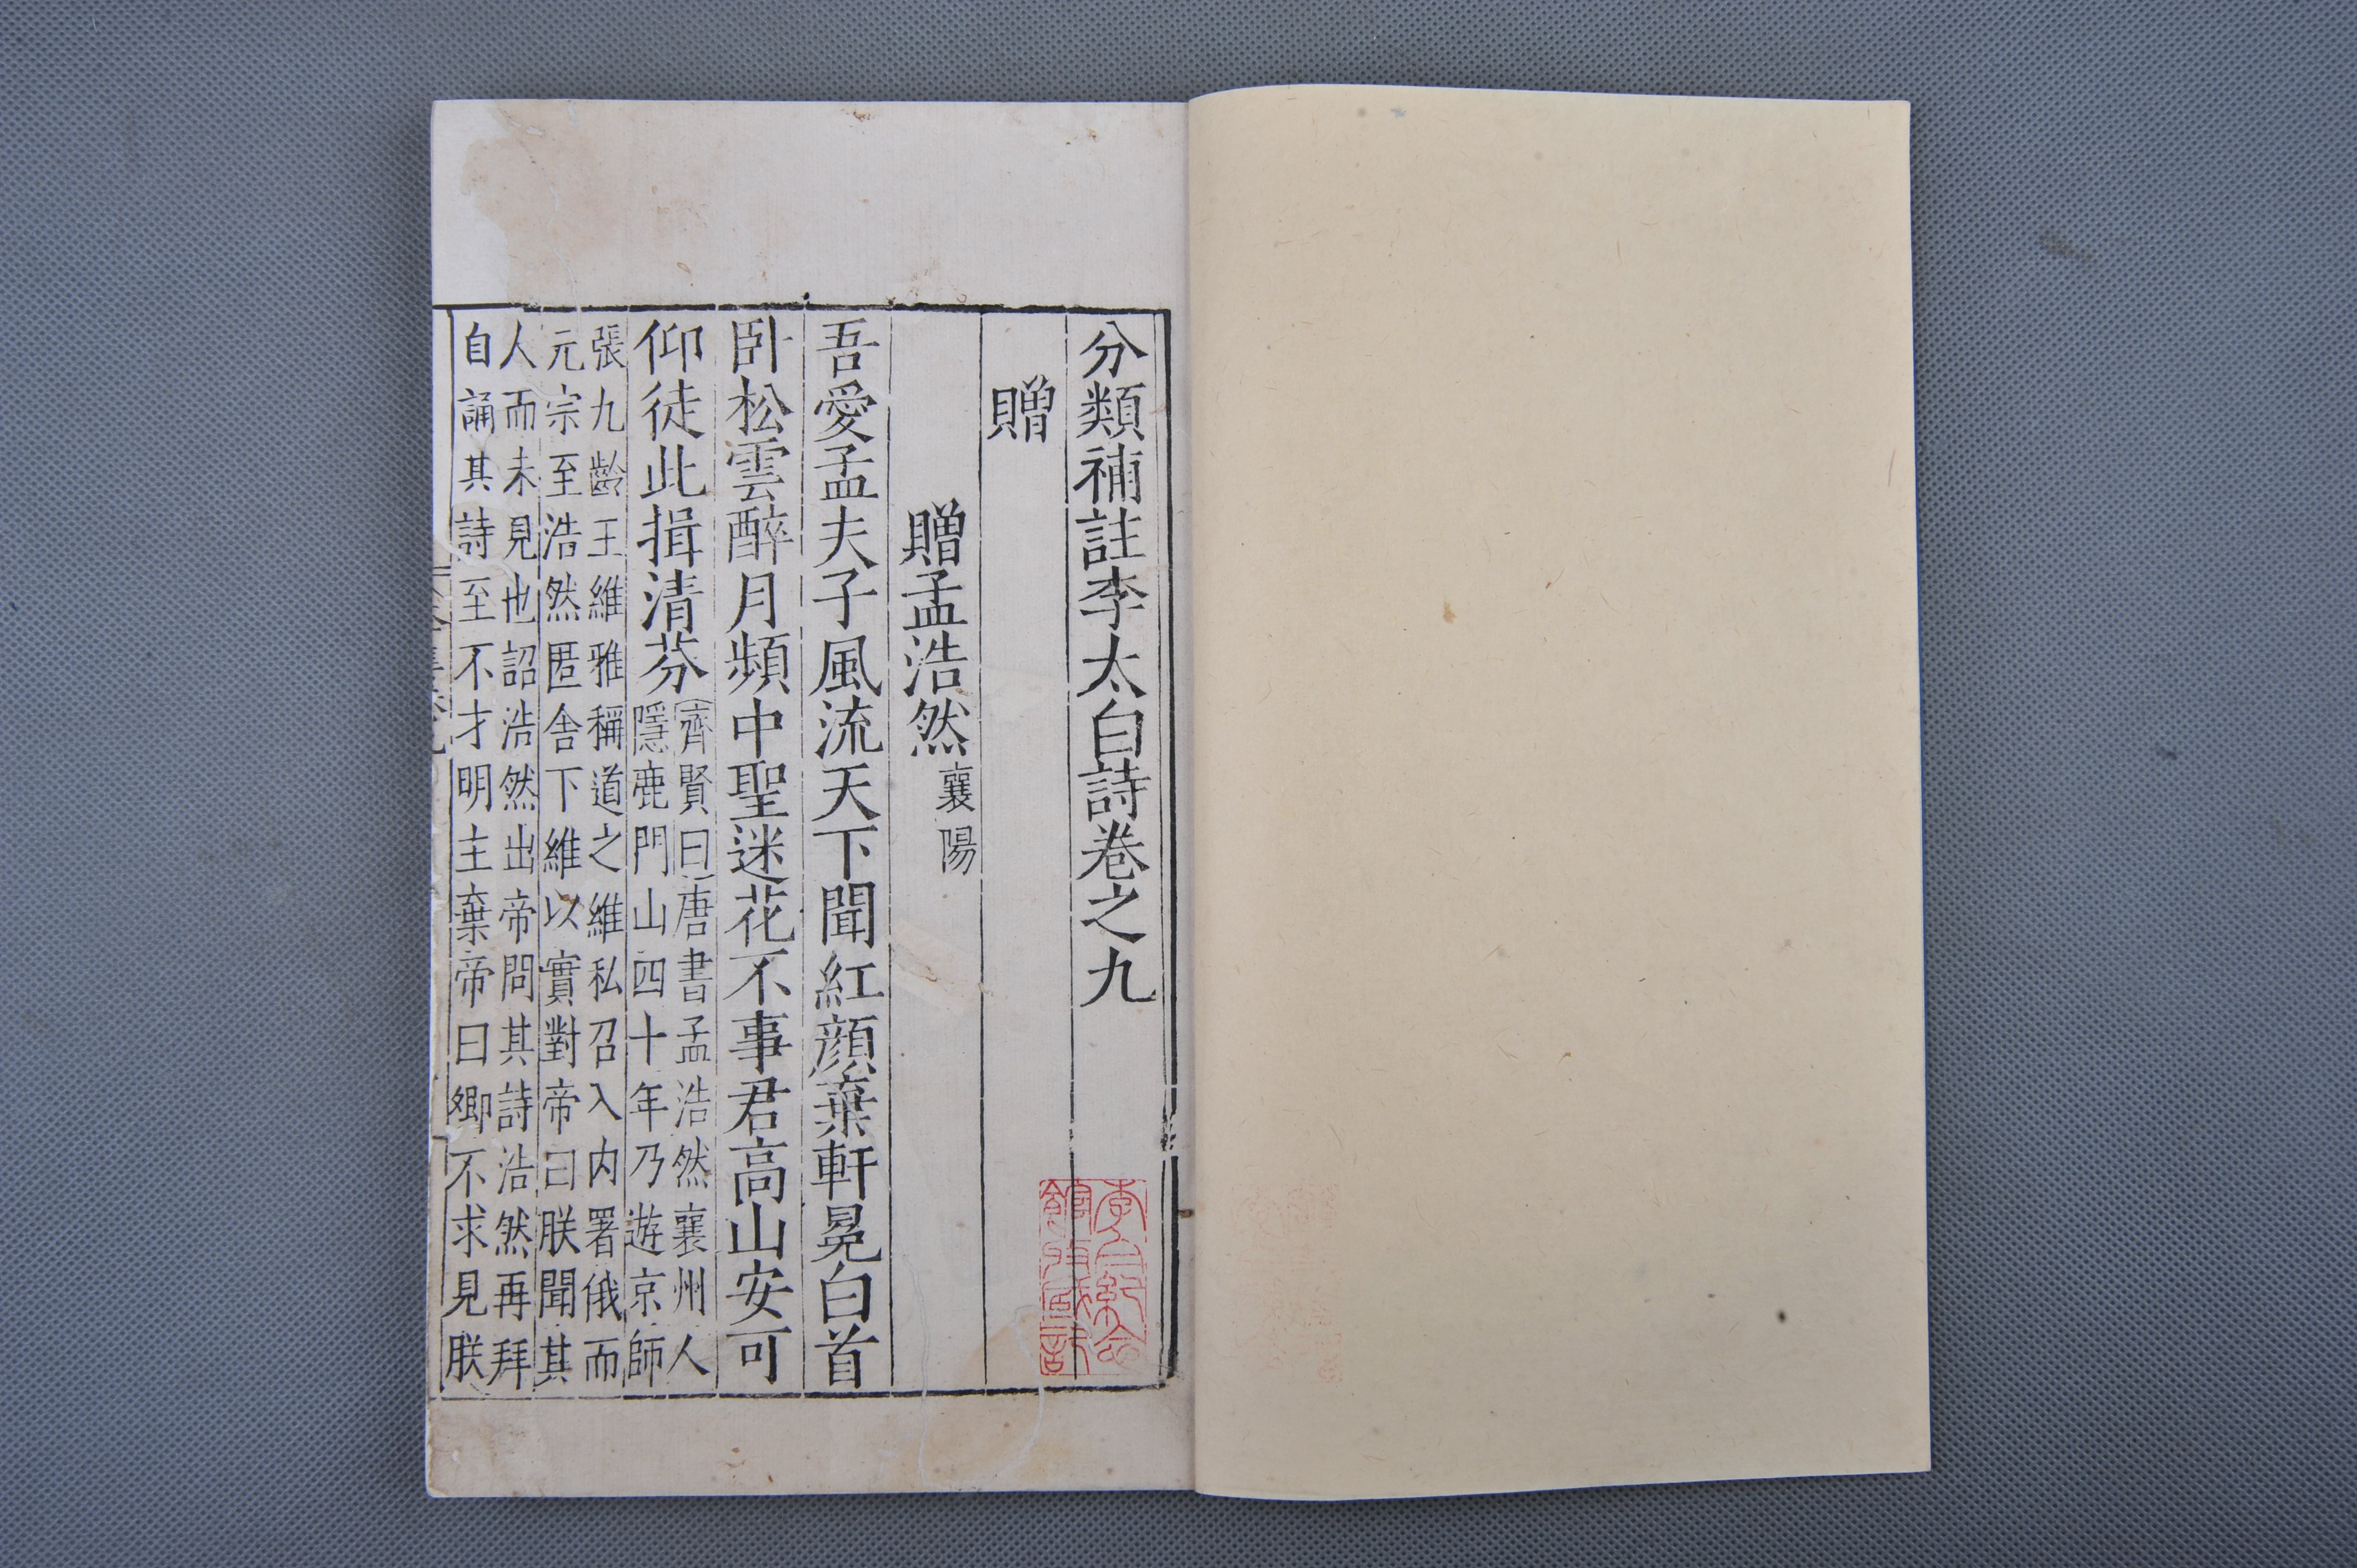 分類補註李太白詩卷之九
贈
贈孟浩然 襄陽
吾愛孟夫子風流天下聞紅顔棄軒冕白首
臥松雲醉月頻中聖迷花不事君高山安可
仰徒此揖清芬
齊賢曰唐書孟浩然襄州人
隱鹿門山四十年乃遊京師
張九齡王維雅稱道之維私召入内署俄而
元宗至浩然匿舎下維以實對帝曰朕聞其
人而未見也詔浩然出帝問其詩浩然再拜
自誦其詩至不才明主棄帝曰卿不求見朕